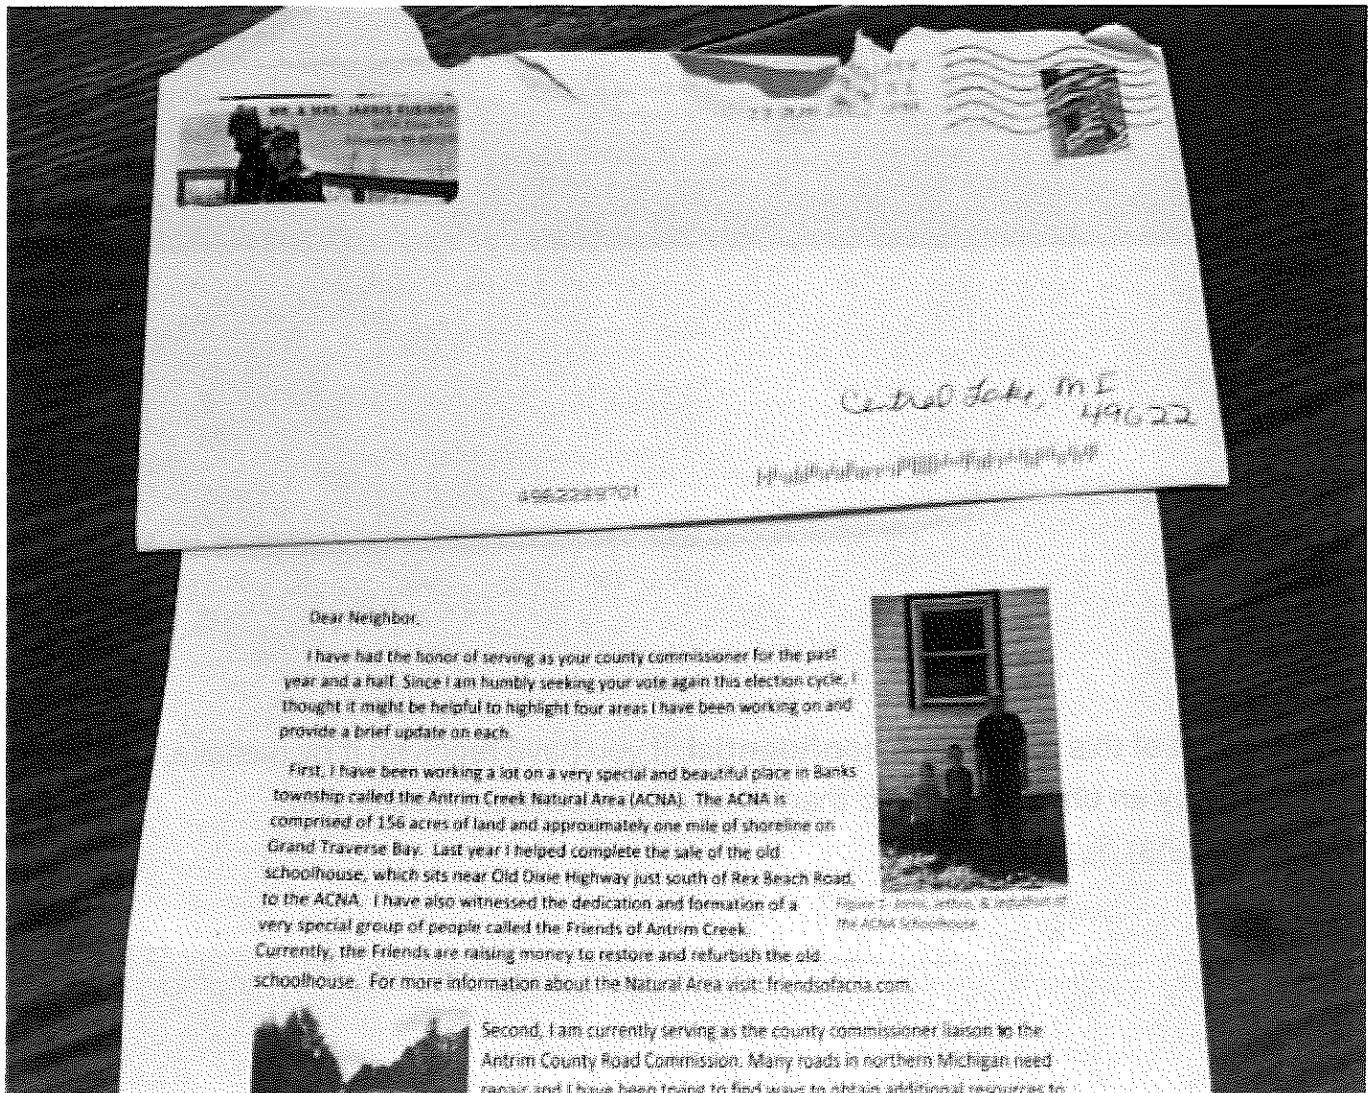 MR. & MRS. JARRIS
Central Lake, MI
49622
4962299701
Dear Neighbor,
I have had the honor of serving as your county commissioner for the past
year and a half. Since I am humbly seeking your vote again this election cycle, I
thought it might be helpful to highlight four areas I have been working on and
provide a brief update on each.
First, I have been working a lot on a very special and beautiful place in Banks
township called the Antrim Creek Natural Area (ACNA). The ACNA is
comprised of 156 acres of land and approximately one mile of shoreline on
Grand Traverse Bay. Last year I helped complete the sale of the old
schoolhouse, which sits near Old Dixie Highway just south of Rex Beach Road,
to the ACNA. I have also witnessed the dedication and formation of a
very special group of people called the Friends of Antrim Creek.
Currently, the Friends are raising money to restore and refurbish the old
schoolhouse. For more information about the Natural Area visit: friendsofacna.com.
Figure 1- Jarris, & at
the ACNA Schoolhouse
Second, I am currently serving as the county commissioner liaison to the
Antrim County Road Commission. Many roads in northern Michigan need
repair and I have been trying to find ways to obtain additional resources to